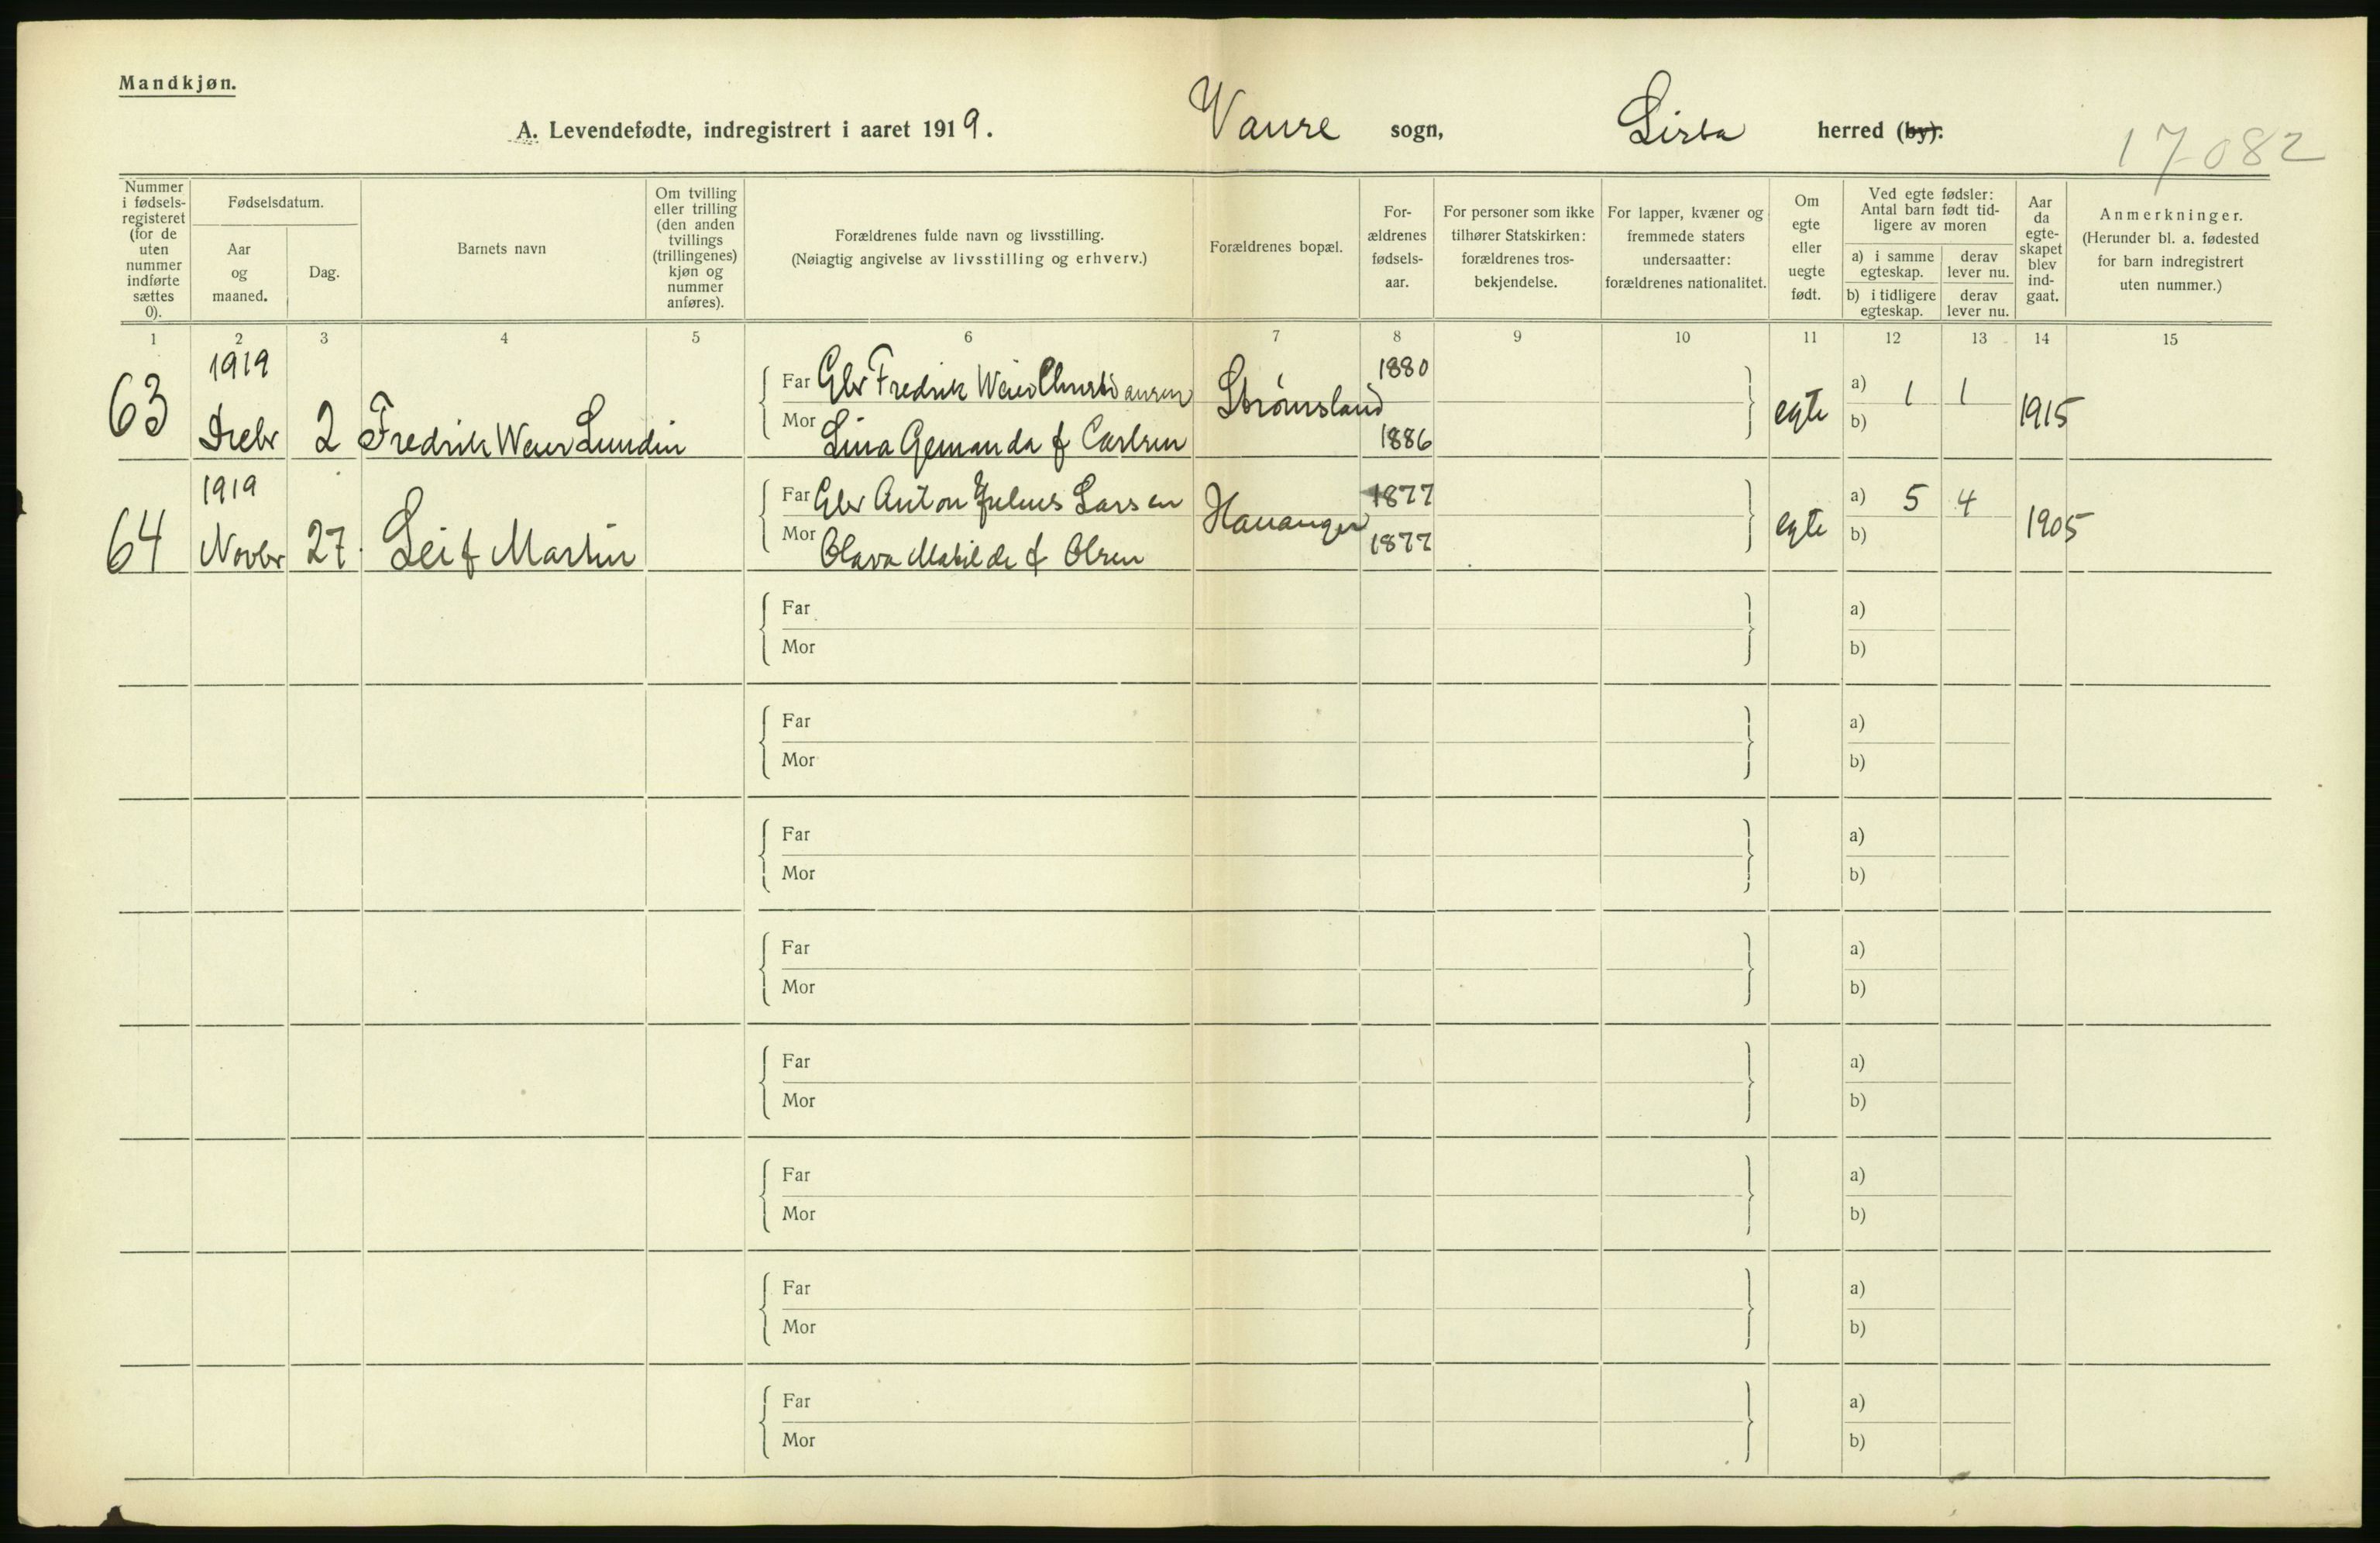 Mandkjøn.
A. Levendefødte, indregistrert i aaret 1919. Vanse sogn, Lista herred (by).
17082
Nummer i fødsels-registeret (for de uten nummer indførte sættes 0).
Fødselsdatum.
Aar og maaned.
Dag.
Barnets navn
Om tvilling eller trilling (den anden tvillings (trillingenes) kjøn og nummer anføres).
Forældrenes fulde navn og livsstilling.
(Nøiagtig angivelse av livsstilling og erhverv.)
Forældrenes bopæl.
For-ældrenes fødsels-aar.
For personer som ikke tilhører Statskirken: forældrenes tros-bekjendelse.
For lapper, kvæner og fremmede staters undersaatter: forældrenes nationalitet.
Om egte eller uegte født.
Ved egte fødsler: Antal barn født tid-ligere av moren
a) i samme egteskap.
derav lever nu.
b) i tidligere egteskap.
derav lever nu.
Aar da egte-skapet blev ind-gaat.
Anmerkninger.
(Herunder bl. a. fødested for barn indregistrert uten nummer.)
1 2 3 4 5 6 7 8 9 10 11 12 13 14 15
63 1919 Decbr 2 Fredrik Weier Lundin
Far Gbr Fredrik Weier Christiansen Strømsland 1880
Mor Lina Gemanda f Carlsen 1886
egte a) 1 1 1915
b)
64 1919 Novbr 27. Leif Martin
Far Gbr Anton Julius Larsen Hananger 1877
Mor Olava Matilde f Olsen 1877
egte a) 5 4 1905
b)
Far a)
Mor b)
Far a)
Mor b)
Far a)
Mor b)
Far a)
Mor b)
Far a)
Mor b)
Far a)
Mor b)
Far a)
Mor b)
Far a)
Mor b)